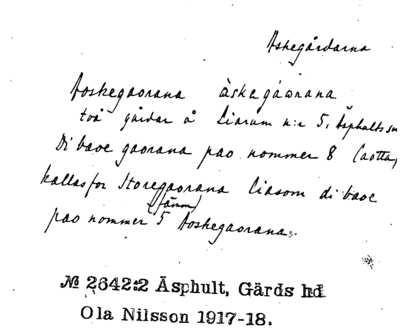 Askegårdarna
Aoskegaorana åskagáorana
två gårdar å Liarum n:r 5, Äsphults sn
Di baoe gaorana pao nommer 8 (aotta)
kallas for Storegaorana liasom di baoe
(fämm)
pao nommer 5 Aoskegaorana.
№ 2642:2 Äsphult, Gärds hd
Ola Nilsson 1917-18.